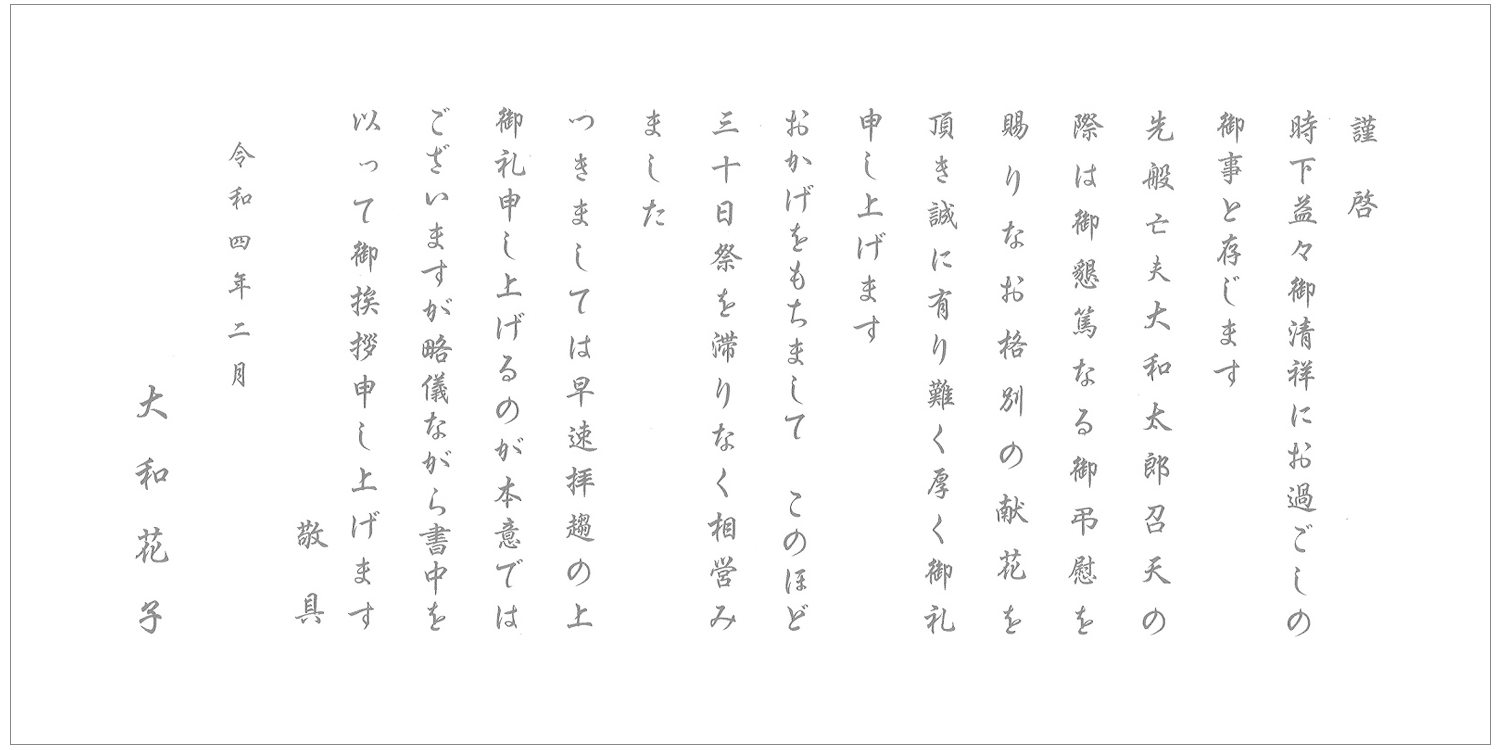 謹 啓
時下益々御清祥にお過ごしの
御事と存じます
先般亡夫大和太郎召天の
際は御懇篤なる御弔慰を
賜りなお格別の献花を
頂き誠に有り難く厚く御礼
申し上げます
おかげをもちまして このほど
三十日祭を滞りなく相営み
ました
つきましては早速拝趨の上
御礼申し上げるのが本意では
ございますが略儀ながら書中を
以って御挨拶申し上げます
敬 具
令和四年二月
大和花子